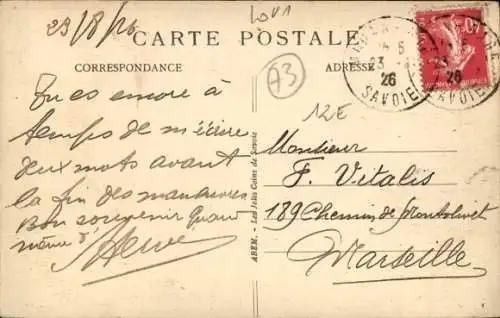 23/8/26
LOV1
CARTE POSTALE
CORRESPONDANCE
ADRESSE
A3
12E
26
SAVOIE
26
SAVOIE
40
Tu es encore à
temps de m'écrire
deux mots avant
la fin des manœuvres
Bon souvenir quand
même d'
Herve
ABEM. - Les Jolis Coins de Savoie
Monsieur
F. Vitalis
189 Chemin de Montolivet
Marseille